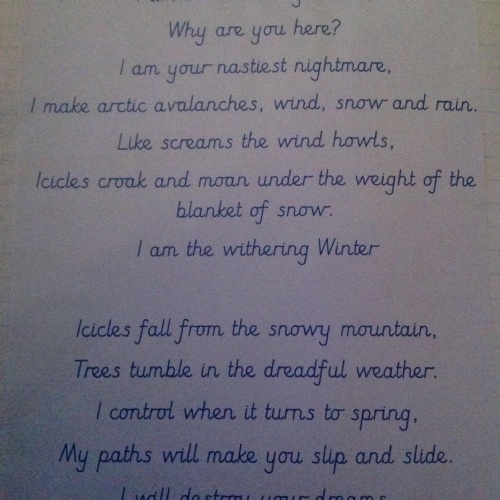 Why are you here?
I am your nastiest nightmare,
I make arctic avalanches, wind, snow and rain.
Like screams the wind howls,
Icicles croak and moan under the weight of the
blanket of snow.
I am the withering Winter
Icicles fall from the snowy mountain,
Trees tumble in the dreadful weather.
I control when it turns to spring,
My paths will make you slip and slide.
I will destroy your dreams